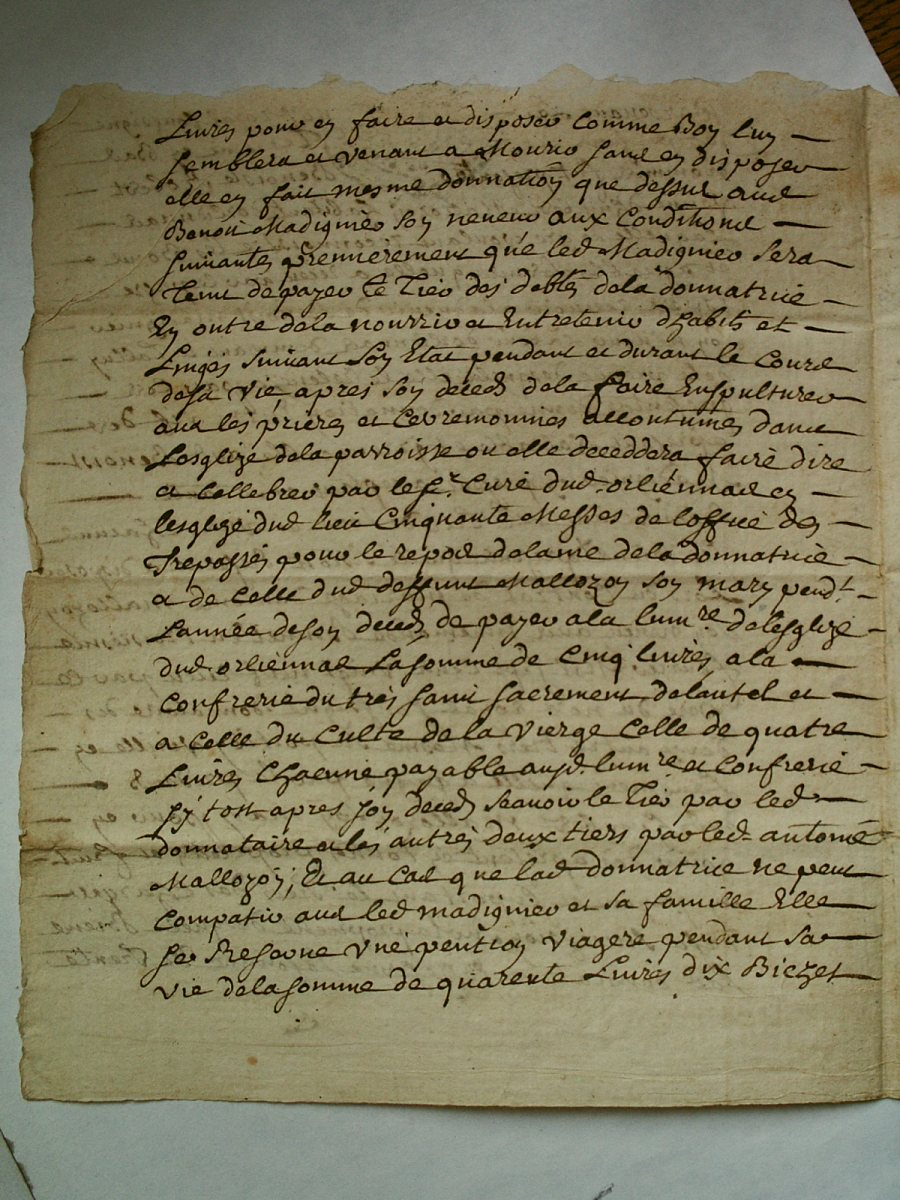 Livres pour en faire et disposer comme Bon luy
semblera et venant a Mourir sans en disposer
elle en fait mesme donnation que dessus aud
Benoit Madignier son neveu aux Conditions
suivantes premierement que led Madignier sera
Tenu de payer le Tier des debtes dela donnatrice
En outre dela nourrir et Entretenir d'habits et
Linges suivant son Etat pendant et durant le Cours
desa vie apres son deceds dela faire Ensepulturer
avec les prieres et Cerremonnies accoutumes dans
Lesglize dela parroisse ou elle deceddera faire dire
et Cellebrer par le Sr. Curé dud. orliennas en
lesglize dud lieu Cinquante Messes de loffice des
Trepassés pour le repos delame dela donnatrice
et de Celle dud deffunt Mallozon son mary pendt.
Lannée deson deceds de payer ala lumre delesglize
dud orliennas La somme de Cinq livres, a la
Confrerie du tres saint sacrement delautel et
a Celle du Culte de la vierge Celle de quatre
Livres Chacune payable ausd. lumre et Confrerie
sy tost apres son deceds scavoir le Tier par led
donnataire et les autres deux tiers par led. antoine
Mallozon; Et au Cas que lad donnatrice ne peut
Compatir avec led madignier et sa famille Elle
se Reserve une pention viagere pendant sa
vie dela somme de quarente Livres dix Bichet